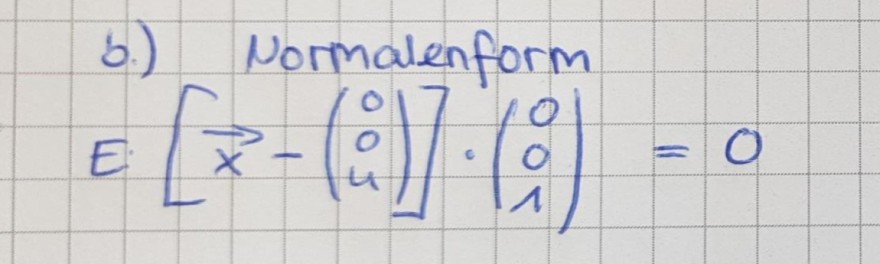 b.) Normalenform
E: [x⃗ - (0 0 4)] · (0 0 1) = 0